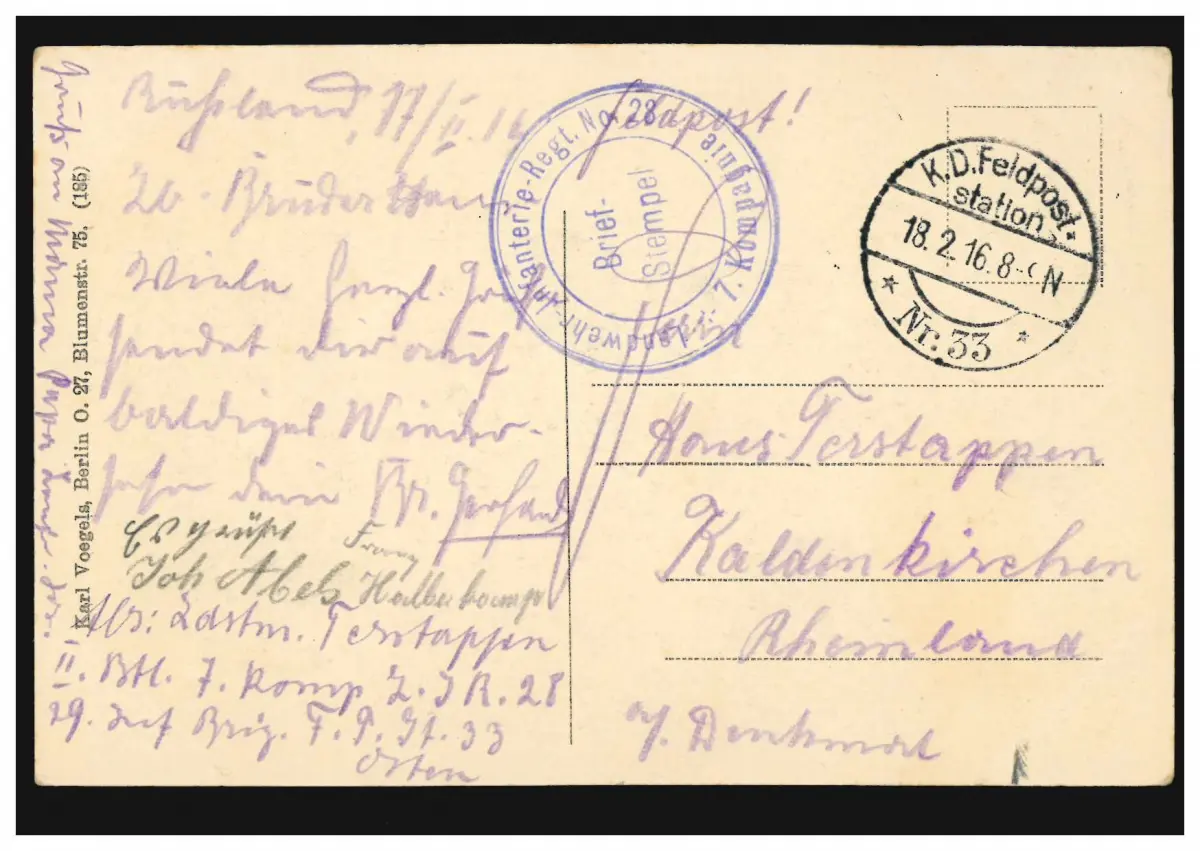 Russland, 17/II.16
Lb. Bruder Hans
Viele herzl.
sendet dir auf
baldiges Wieder-
sehn dein Br. Gerhard
Es grüßt Franz
Joh Abels
Abs: Ldstm. Terstappen
II. Btl. 7. Komp L. I R. 28
29. Inf Brig. F. P. St. 33
Osten
Karl Voegels, Berlin O. 27, Blumenstr. 75. (185)
Feldpost!
Landwehr-Infanterie-Regt. No. 28
7. Kompagnie
Brief-
Stempel
K.D. Feldpost-
station
18.2.16. 8- N
* Nr. 33 *
Hans Terstappen
Kaldenkirchen
Rheinland
a/. Denkmal